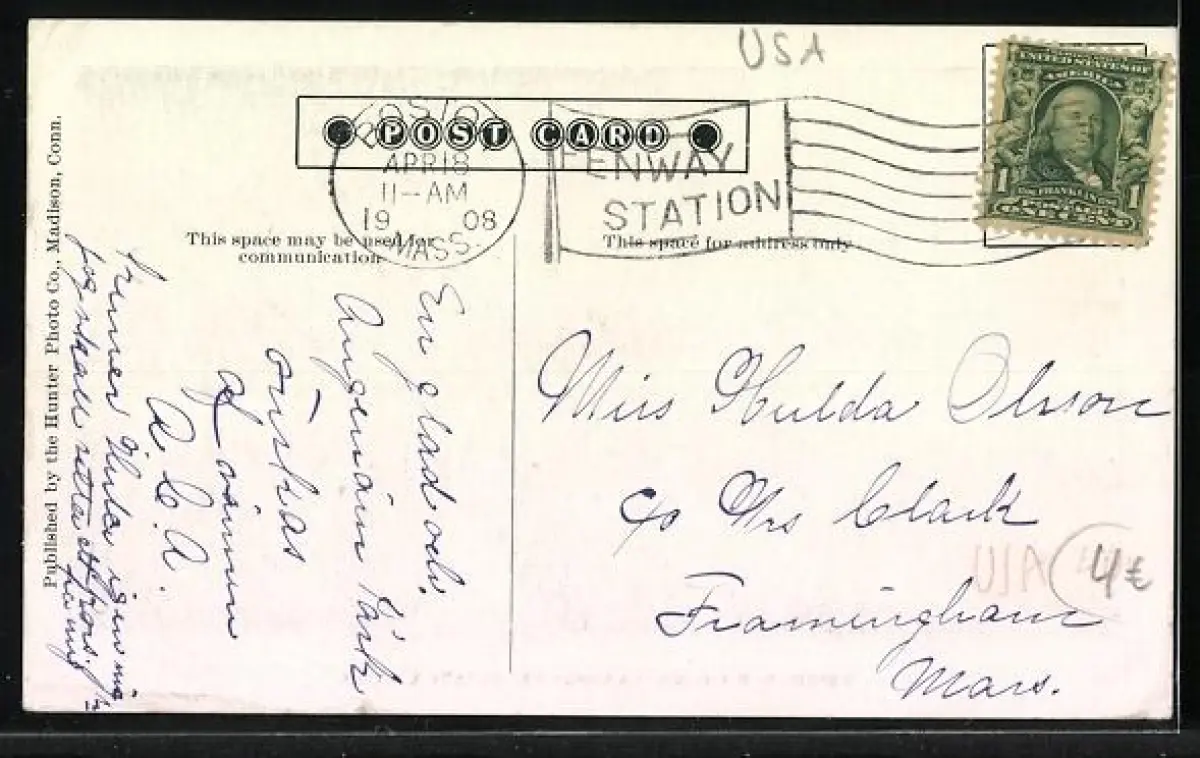 USA
POST CARD
BOSTON
APR 18
11--AM
19 08
MASS.
FENWAY
STATION
UNITED STATES OF
AMERICA
FRANKLIN
1 1
POSTAGE
ONE CENT
This space may be used for
communication
This space for address only
Published by the Hunter Photo Co., Madison, Conn.
En glad och
Angenäm Påsk
önskas
af vännen
A. C. A.
Miss Hulda Olsson
c/o Mrs Clark
Framingham
Mass.
USA
4 €